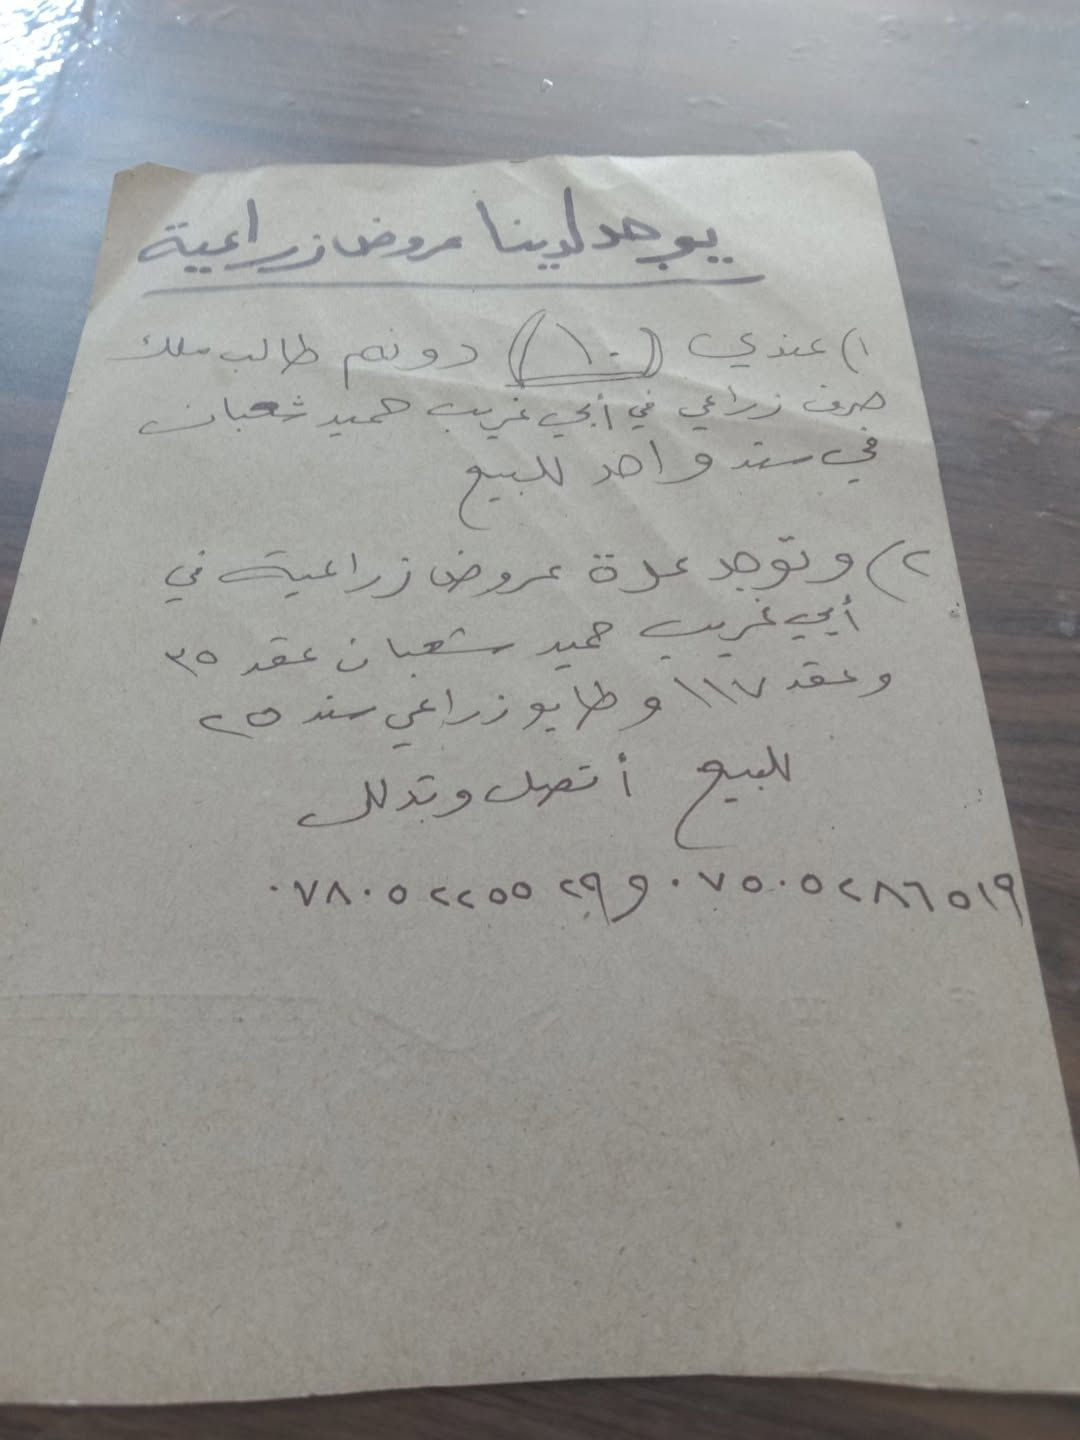 يوجد لدينا عروض زراعية
١) عندي (١٠) دونم طالب ملك
صرف زراعي في أبي غريب حميد شعبان
في سند واحد للبيع
٢) وتوجد عدة عروض زراعية في
أبي غريب حميد شعبان عقد ٣٥
وعقد ١١٧ وطابو زراعي سند ٢٥
للبيع أتصل وتدلل
٠٧٥٠٥٢٨٦٥١٩ و ٠٧٨٠٥٢٢٥٥٢٩